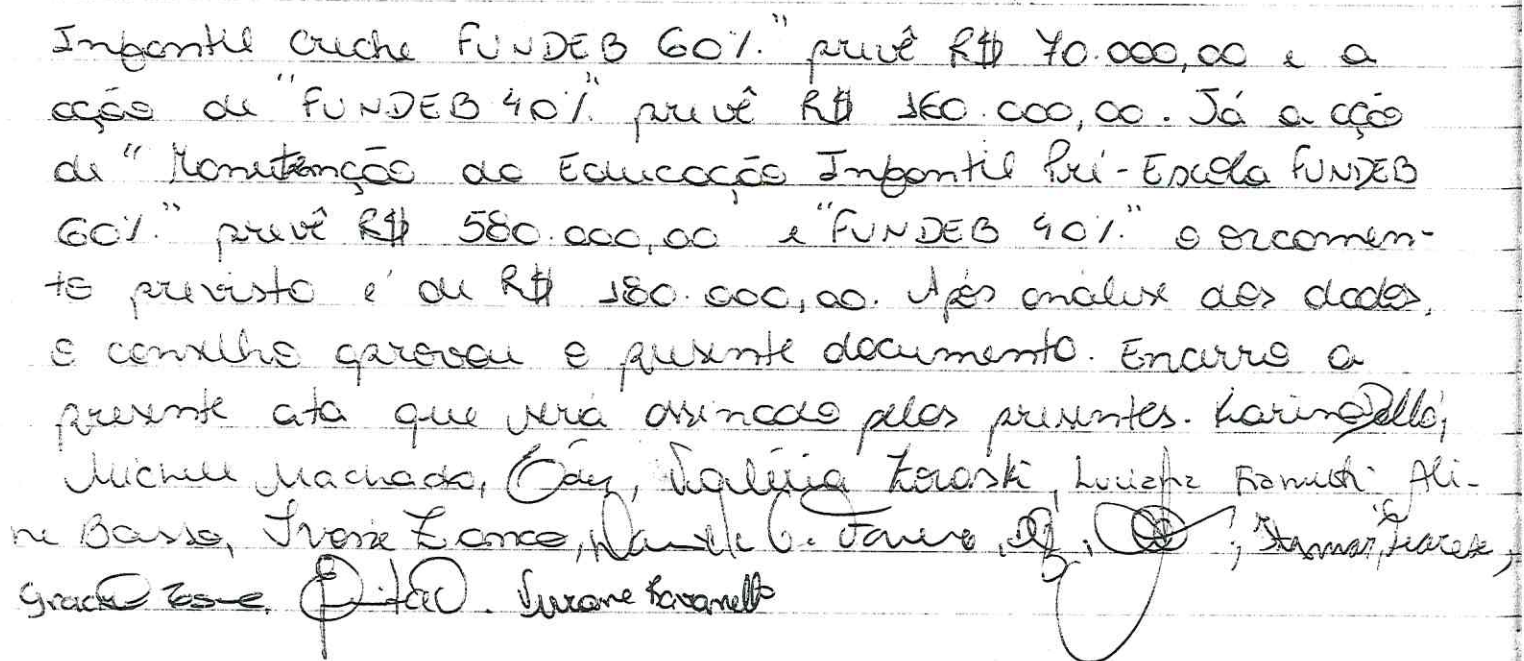 Infantil Creche FUNDEB 60%." prevê R$ 70.000,00 e a
ação de "FUNDEB 40%" prevê R$ 160.000,00. Já a ação
de "Manutenção da Educação Infantil Pré-Escola FUNDEB
60%." prevê R$ 580.000,00 e "FUNDEB 40%." o orcamen-
to previsto é de R$ 180.000,00. Após análise dos dados,
o conselho aprovou o presente documento. Encerro a
presente ata que será assinada pelos presentes. Karina
Michele Machado, Valéria Ali-
ne Basso, Ivone Zanco, Itamar
Grace